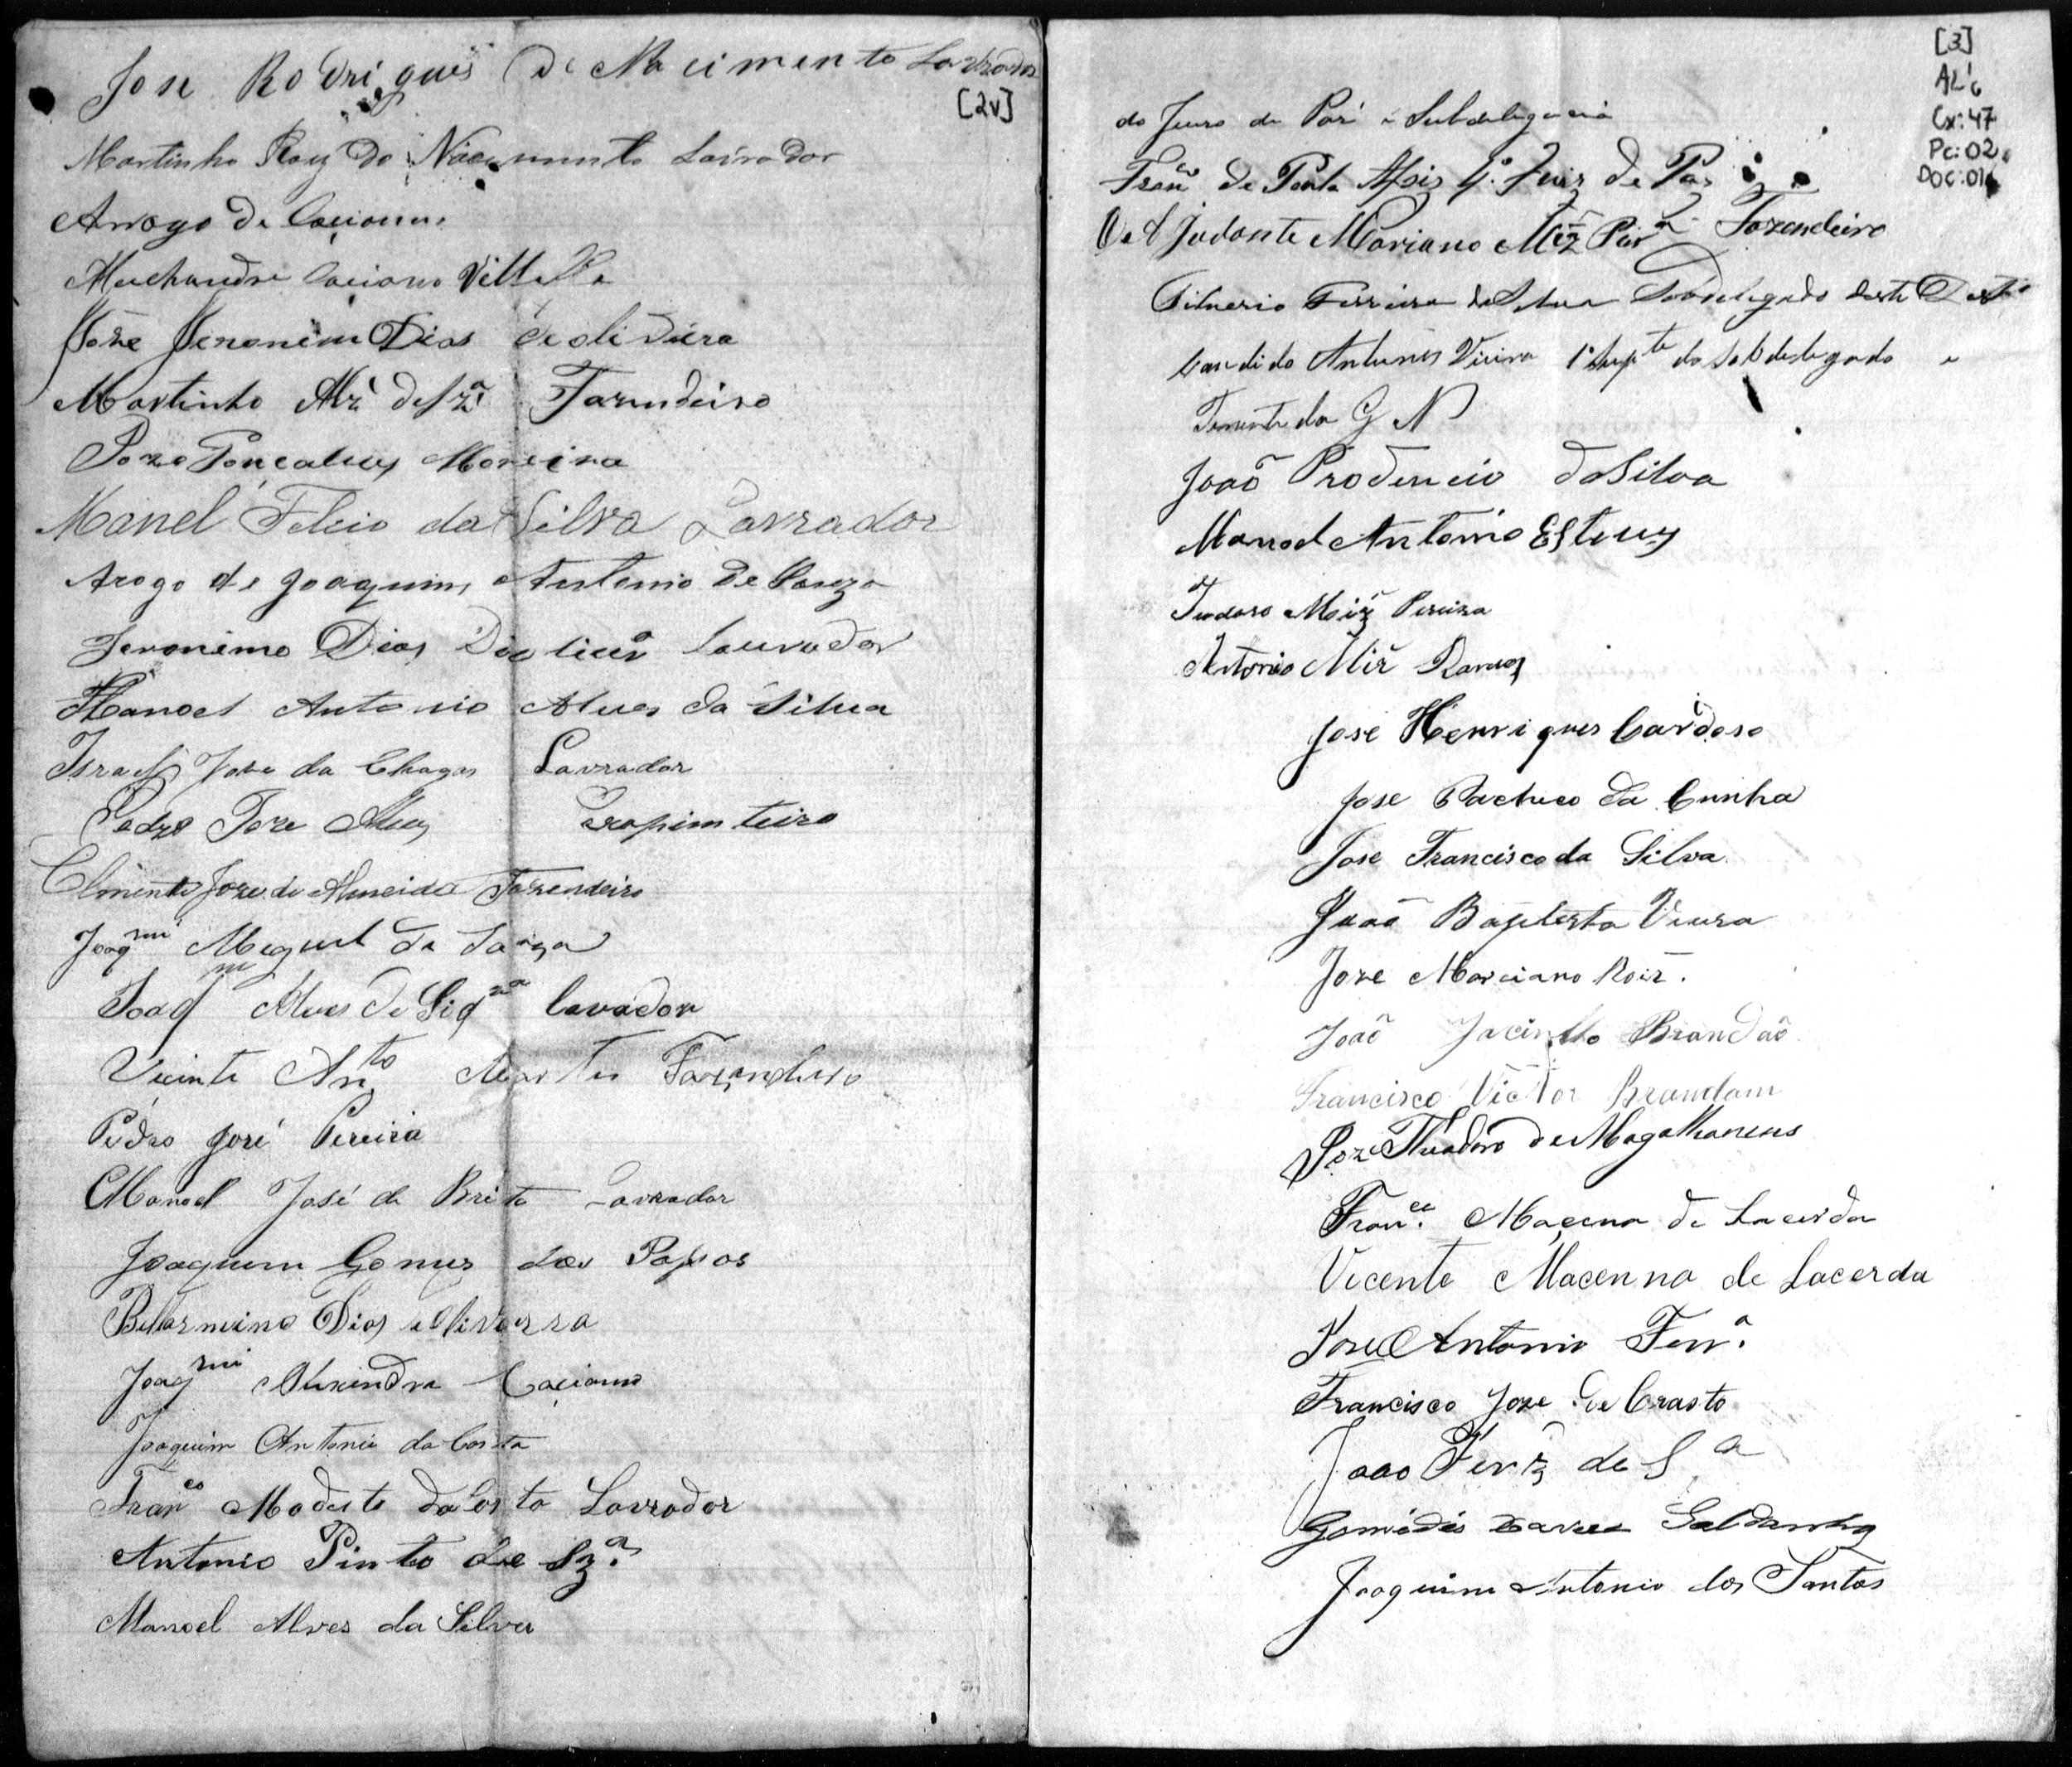 Jose Rodrigues de Nacimento Lavrador
[2v]
Martinho Roiz do Nacimento Lavrador
Arrogo de Caciano
Caciano Villella
Jozé Jeronimo Dias de oliviera
Martinho Alz' de Sz.ª Fazendeiro
Joze Gonçalves Moreira
Manel Felcio da Silva Lavrador
Arogo de Joaquim Antonio de Souza
Jeronimo Dias Lavrador
Manoel Antonio Alves da Silva
Israel Jose da Chagas Lavrador
Pedro Joze Alves Carapinteiro
Clmente Joze de Almeida Fazendeiro
Joaqm Meguel da Souza
Joaqm Alves de Siqra lavrador
Vicente Anto Martes Fazendero
Pedro José Pereira
Manoel José de Brito Lavrador
Joaquim Gomes dos Passos
Bellarmino Dias e Oliverra
Joaqm Alixandre Caciano
Joaquim Antonio da Costa
Franco Modesto da Costa Lavrador
Antonio Pinto de Sz.ª
Manoel Alves da Silva
[3]
AL16
Cx: 47
Pc: 02
Doc: 01
do Juiso de Paz e Subdelegacia
Franco de Paula Assis 4º Juiz de Paz
O Ajudante Mariano Miz Perª Fazendeiro
Silverio Ferreira da Silva Subdelegado deste Destº
Candido Antunes Vieira 1º Supte do Subdelegado e
Tenente da G N
João Prodencio da Silva
Manoel Antonio Esteves
Teodoro Moiz Pereira
Antonio Mir Ramos
José Henriques Cardoso
Jose Pacheco da Cunha
Jose Francisco da Silva
João Baptista Vieira
Joze Marciano Roiz.
João Jacintho Brandão
Francisco Victor Brandam
Joze Theadoro de Magalhaneus
Franco. Macena de Lacerda
Vecente Macenna de Lacerda
Joze Antonio Ferrª.
Francisco Joze de Crasto
Joao Ferz de Sª
Gomides Xavier Saldanha
Joaquim Antonio dos Santos